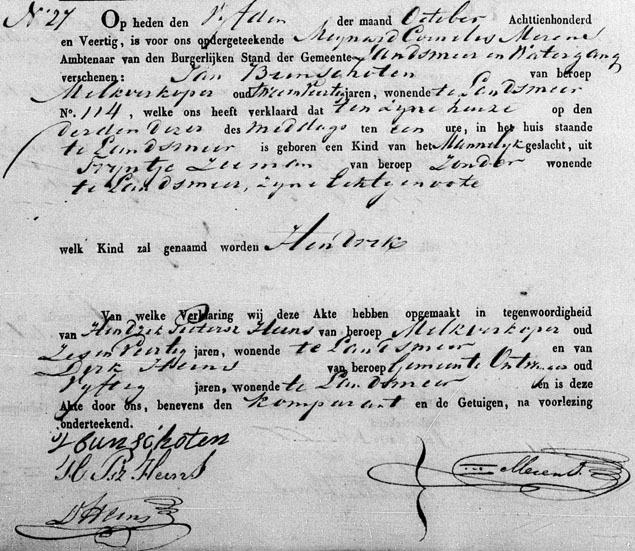 N° 27 Op heden den Vyfden der maand October Achttienhonderd
en Veertig, is voor ons ondergeteekende Meynard Cornelis Merens
Ambtenaar van den Burgerlijken Stand der Gemeente Landsmeer en Watergang
verschenen: Jan Bunschoten van beroep
Melkverkoper oud jaren, wonende te Landsmeer
N°. 114, welke ons heeft verklaard dat ten zyne huize op den
derden dezer des middags ten een ure, in het huis staande
te Landsmeer is geboren een Kind van het Mannelyk geslacht, uit
Tryntje Zeeman van beroep Zonder wonende
te Landsmeer, zyne Echtgenoote
welk Kind zal genaamd worden Hendrik
Van welke Verklaring wij deze Akte hebben opgemaakt in tegenwoordigheid
van Hendrik Pietersz Heins van beroep Melkverkoper oud
Zes en Veertig jaren, wonende te Landsmeer en van
Dirk Heins van beroep Gemeente oud
Vyftig jaren, wonende te Landsmeer en is deze
Akte door ons, benevens den komparant en de Getuigen, na voorlezing
onderteekend.
J Bunschoten
H Pz Heins
Merens
D Heins